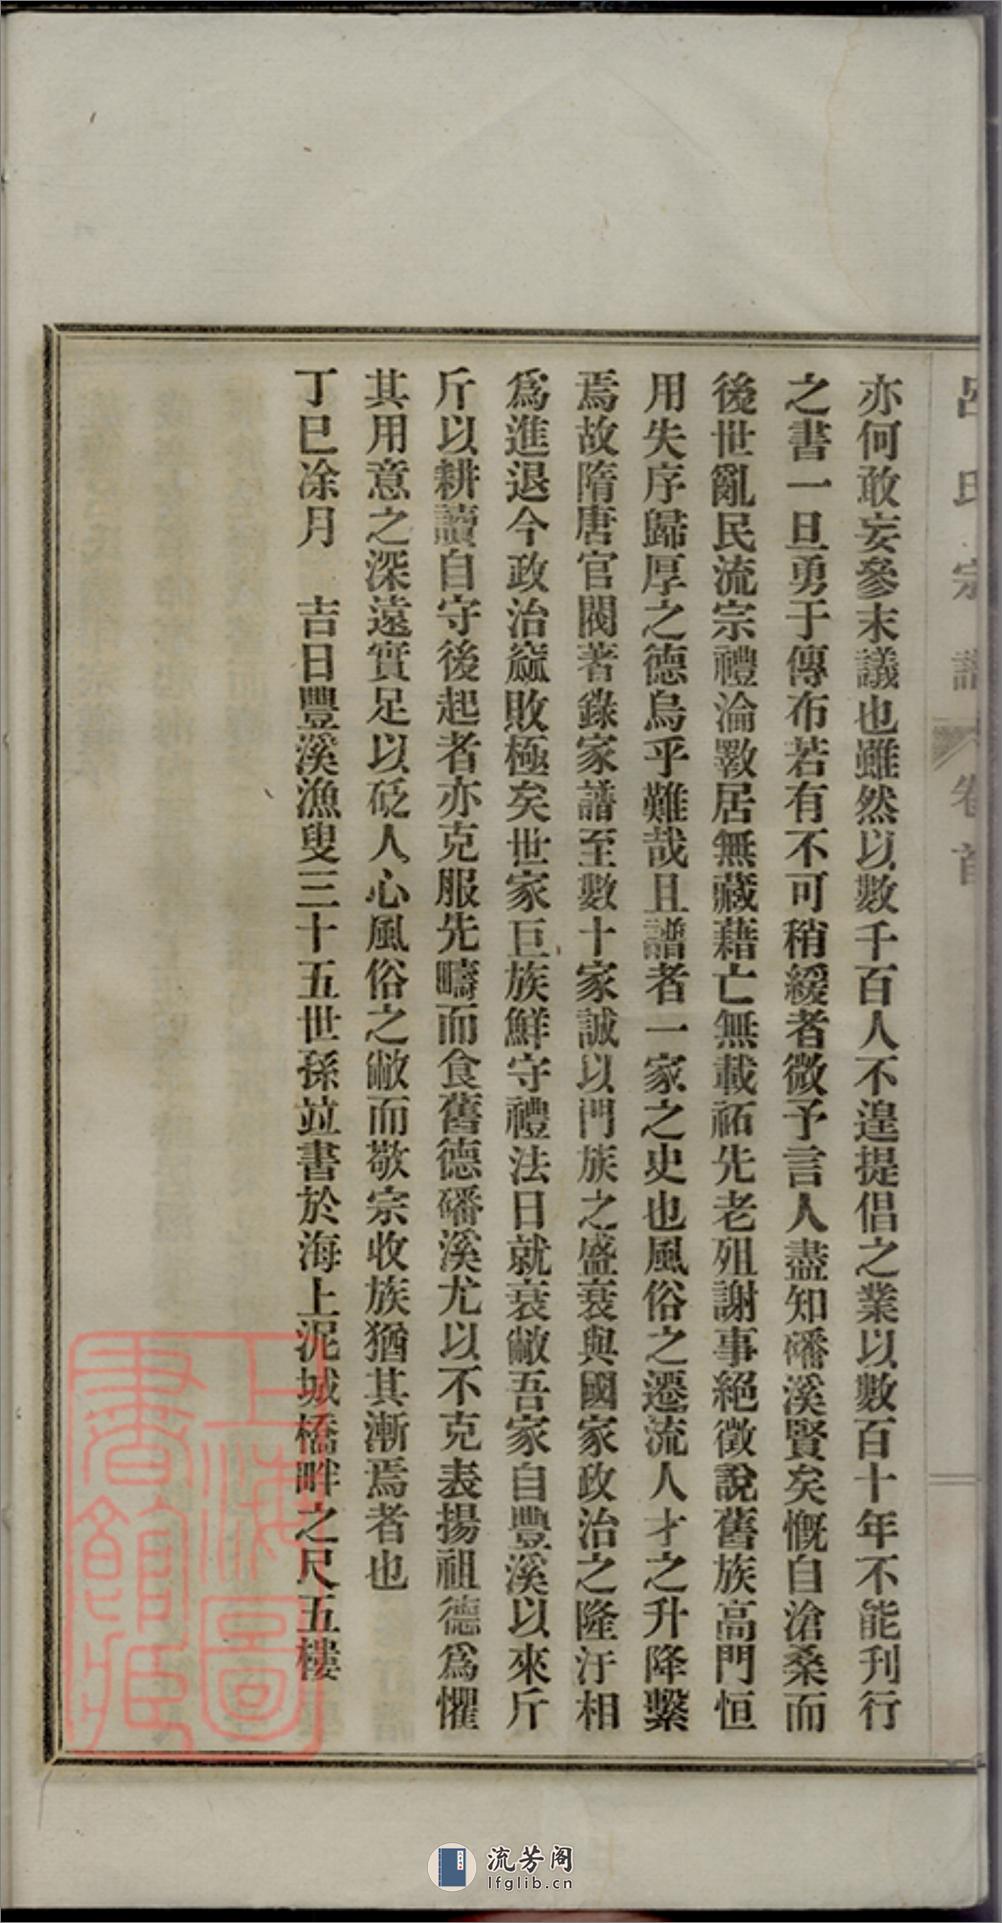 呂氏宗譜 卷首
亦何敢妄參末議也雖然以數千百人不遑提倡之業以數百十年不能刋行
之書一旦勇于傳布若有不可稍緩者微予言人盡知磻溪賢矣慨自滄桑而
後世亂民流宗禮淪斁居無藏藉亡無載祏先老殂謝事絕徵說舊族高門恒
用失序歸厚之德烏乎難哉且譜者一家之史也風俗之遷流人才之升降繫
焉故隋唐官閥著錄家譜至數十家誠以門族之盛衰與國家政治之隆汙相
爲進退今政治窳敗極矣世家巨族鮮守禮法日就衰敝吾家自豐溪以來斤
斤以耕讀自守後起者亦克服先疇而食舊德磻溪尤以不克表揚祖德爲懼
其用意之深遠實足以砭人心風俗之敝而敬宗收族猶其漸焉者也
丁巳涂月　吉日豐溪漁叟三十五世孫竝書於海上泥城橋畔之尺五樓
上海圖書館藏
流芳阁
lfglib.cn